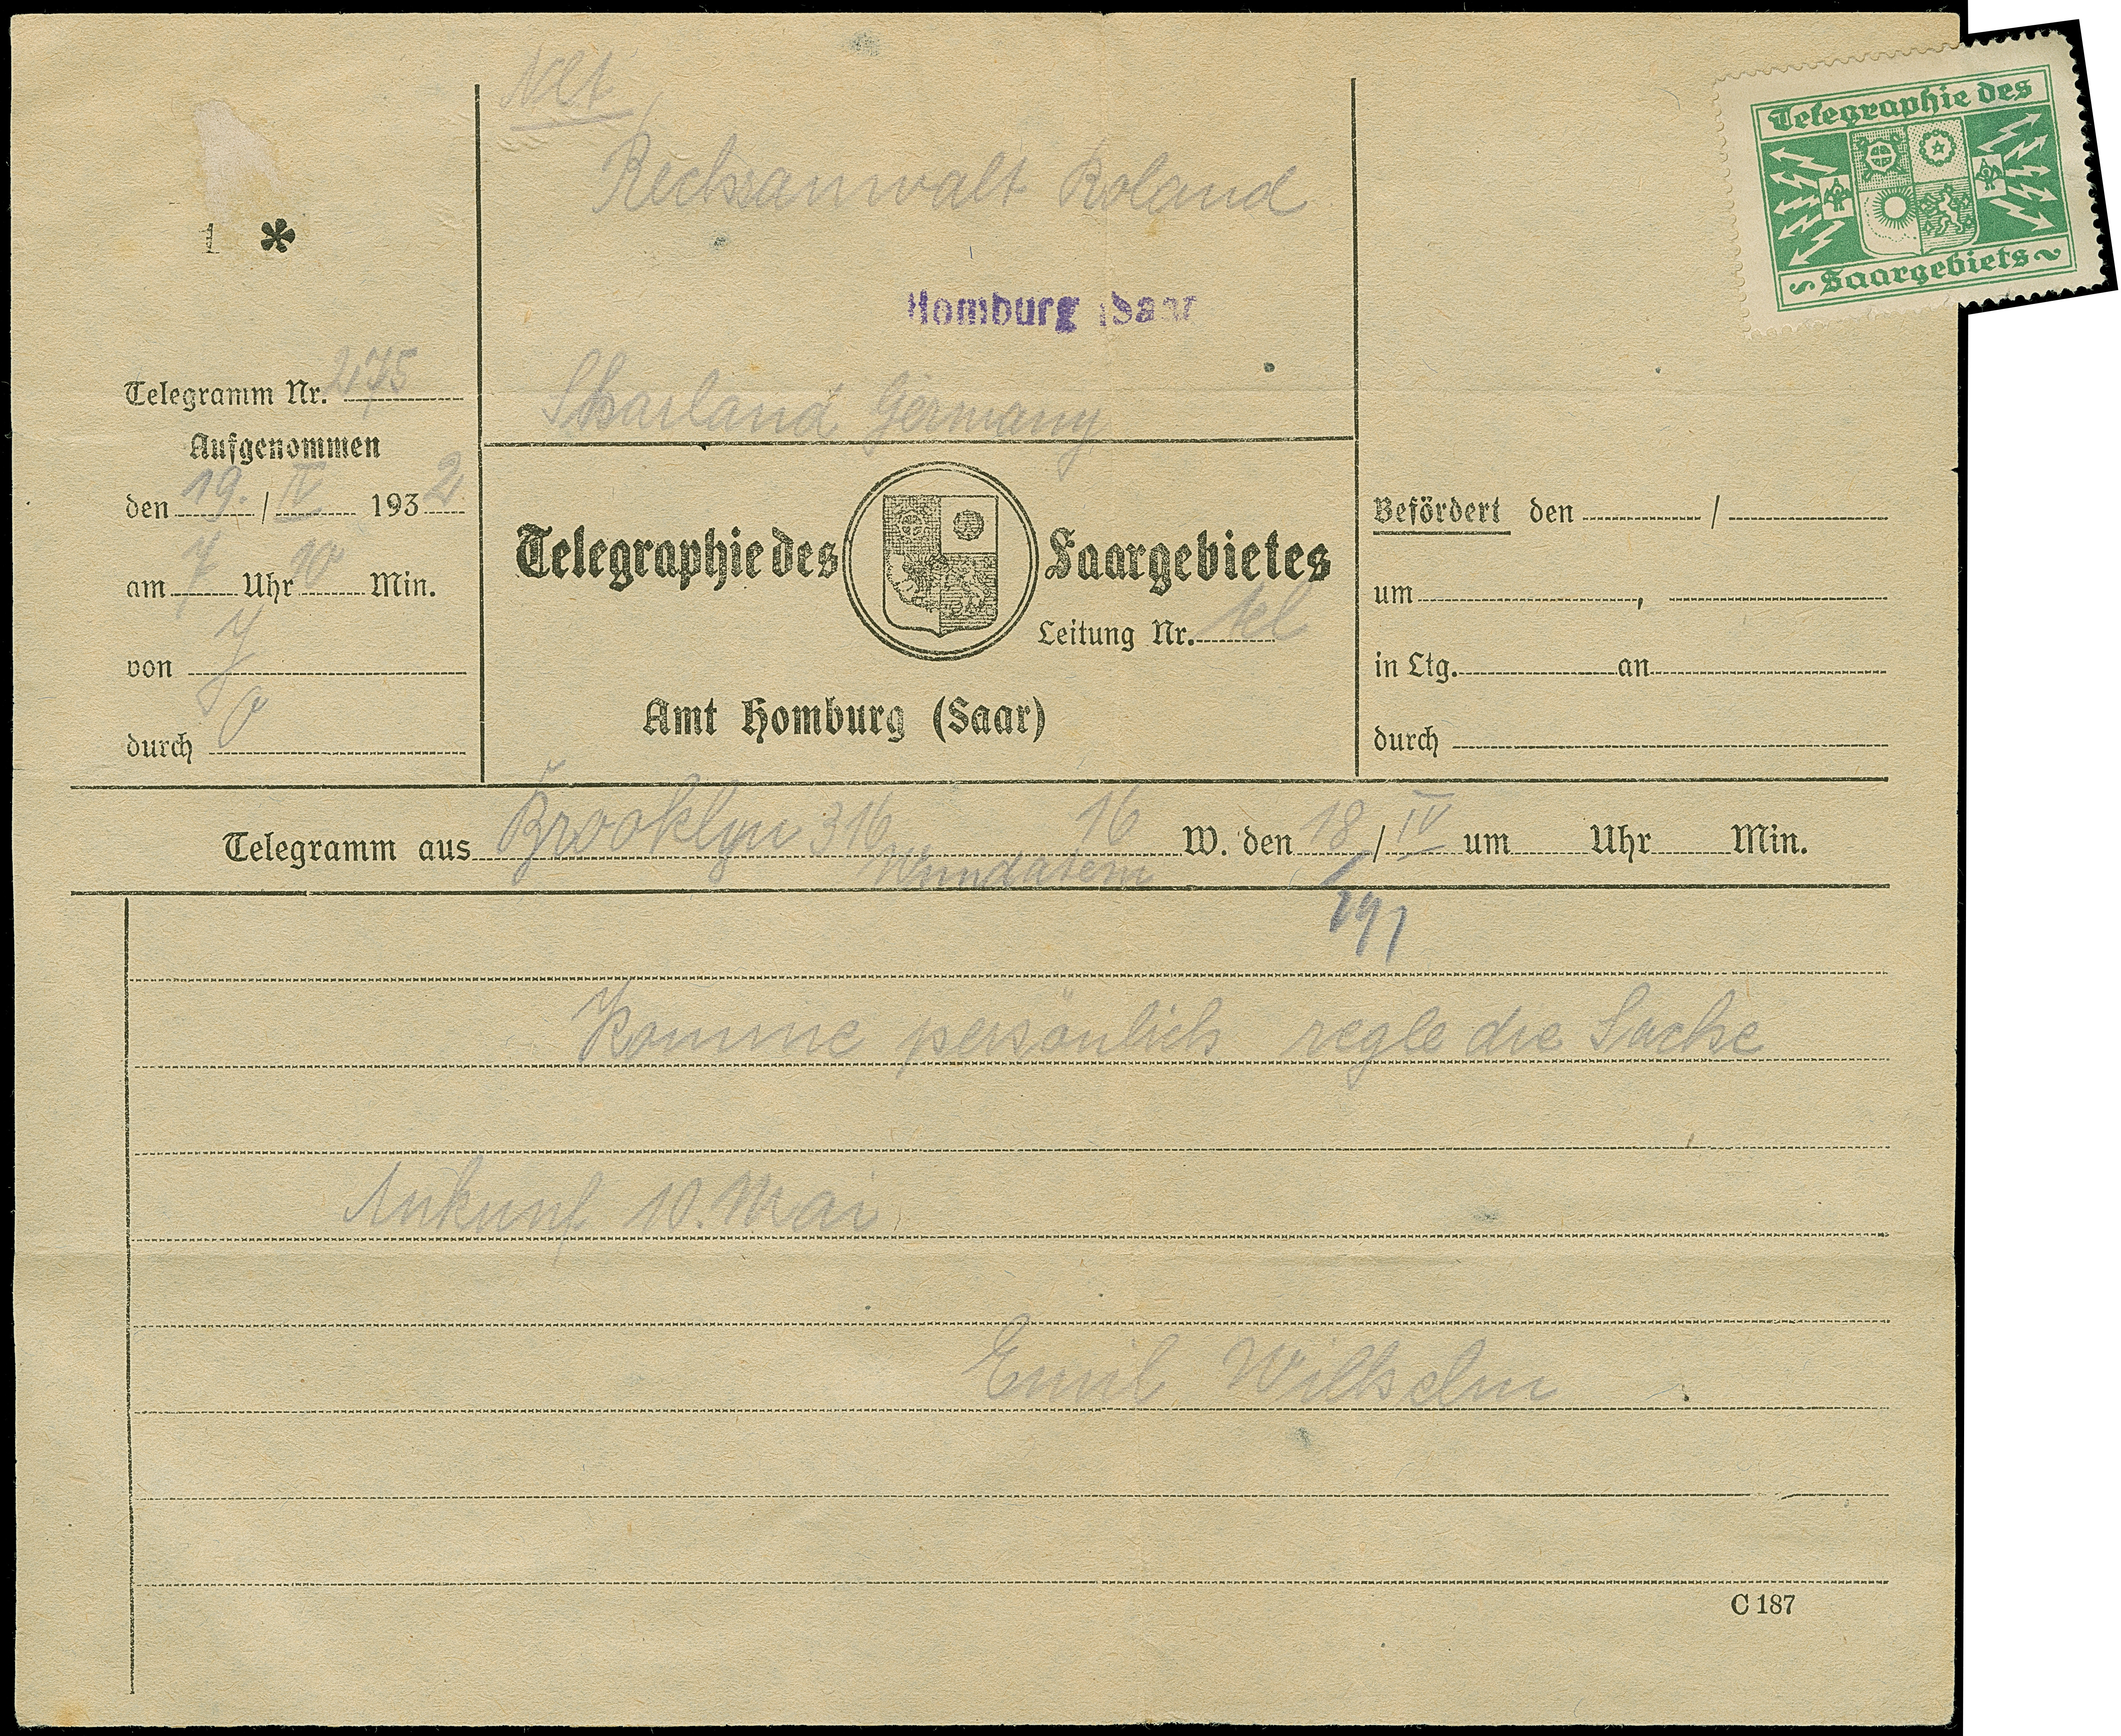 Nlt
Rechsanwalt Roland
Homburg Saar
Saarland Germany
Telegraphie des
Saargebiets
1 *
Telegramm Nr. 275
Aufgenommen
den 19. / IV 1932
am 7 Uhr 10 Min.
von
durch
Telegraphie des Saargebietes
Leitung Nr. tel
Amt Homburg (Saar)
Befördert den /
um ,
in Ltg. an
durch
Telegramm aus Brooklyn 316 16 W. den 18 / IV um Uhr Min.
Komme persönlich regle die Sache
Ankunf 10. Mai
Emil Wilhelm
C 187